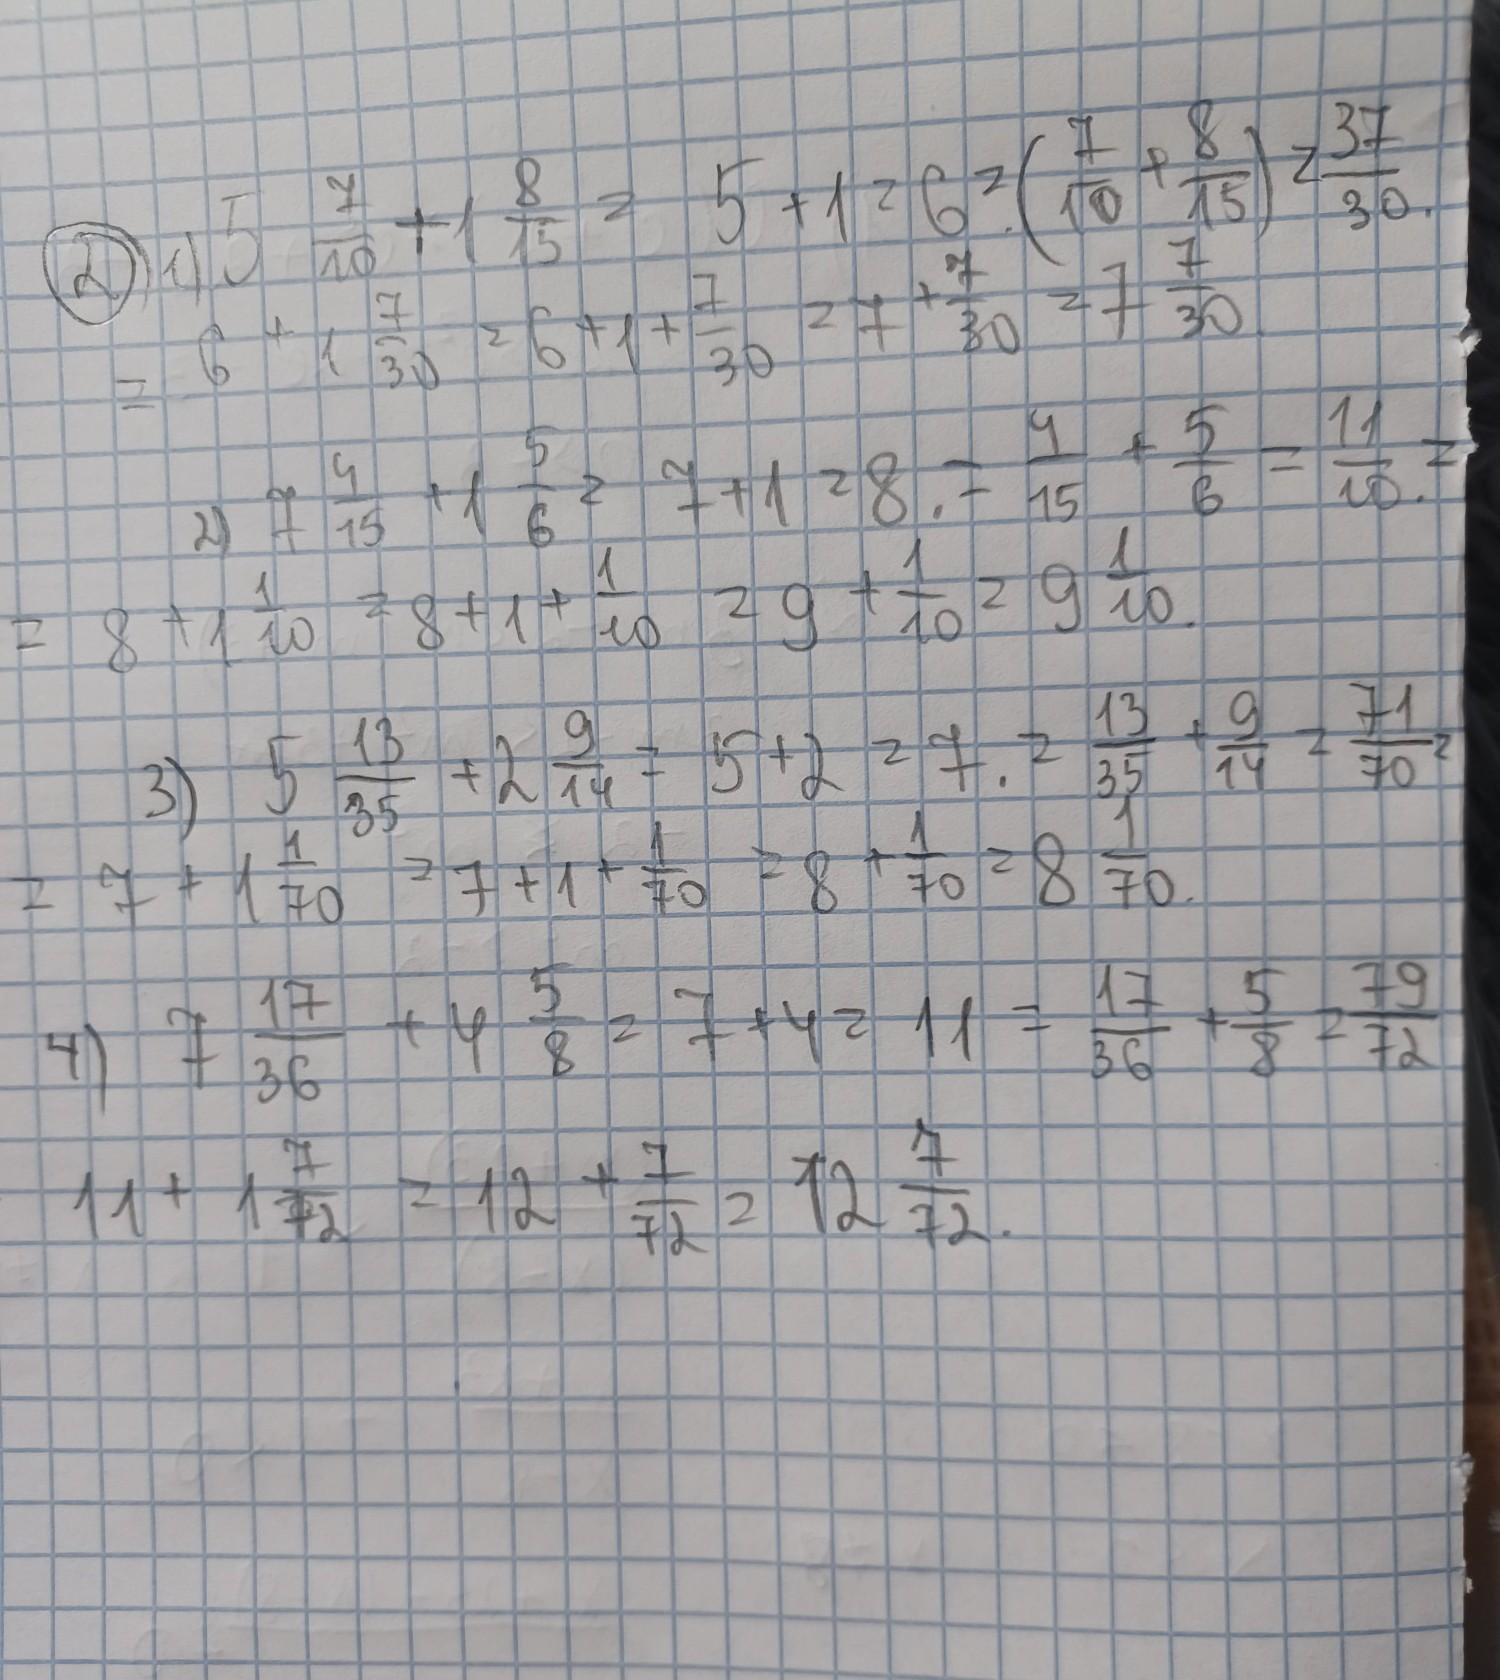 2) 1) 5 7/10 + 1 8/15 = 5 + 1 = 6. = (7/10 + 8/15) = 37/30.
= 6 + 1 7/30 = 6 + 1 + 7/30 = 7 + 7/30 = 7 7/30
2) 7 4/15 + 1 5/6 = 7 + 1 = 8. = 4/15 + 5/6 = 11/10. =
= 8 + 1 1/10 = 8 + 1 + 1/10 = 9 + 1/10 = 9 1/10.
3) 5 13/35 + 2 9/14 = 5 + 2 = 7. = 13/35 + 9/14 = 71/70 =
= 7 + 1 1/70 = 7 + 1 + 1/70 = 8 + 1/70 = 8 1/70.
4) 7 17/36 + 4 5/8 = 7 + 4 = 11 = 17/36 + 5/8 = 79/72
11 + 1 7/72 = 12 + 7/72 = 12 7/72.